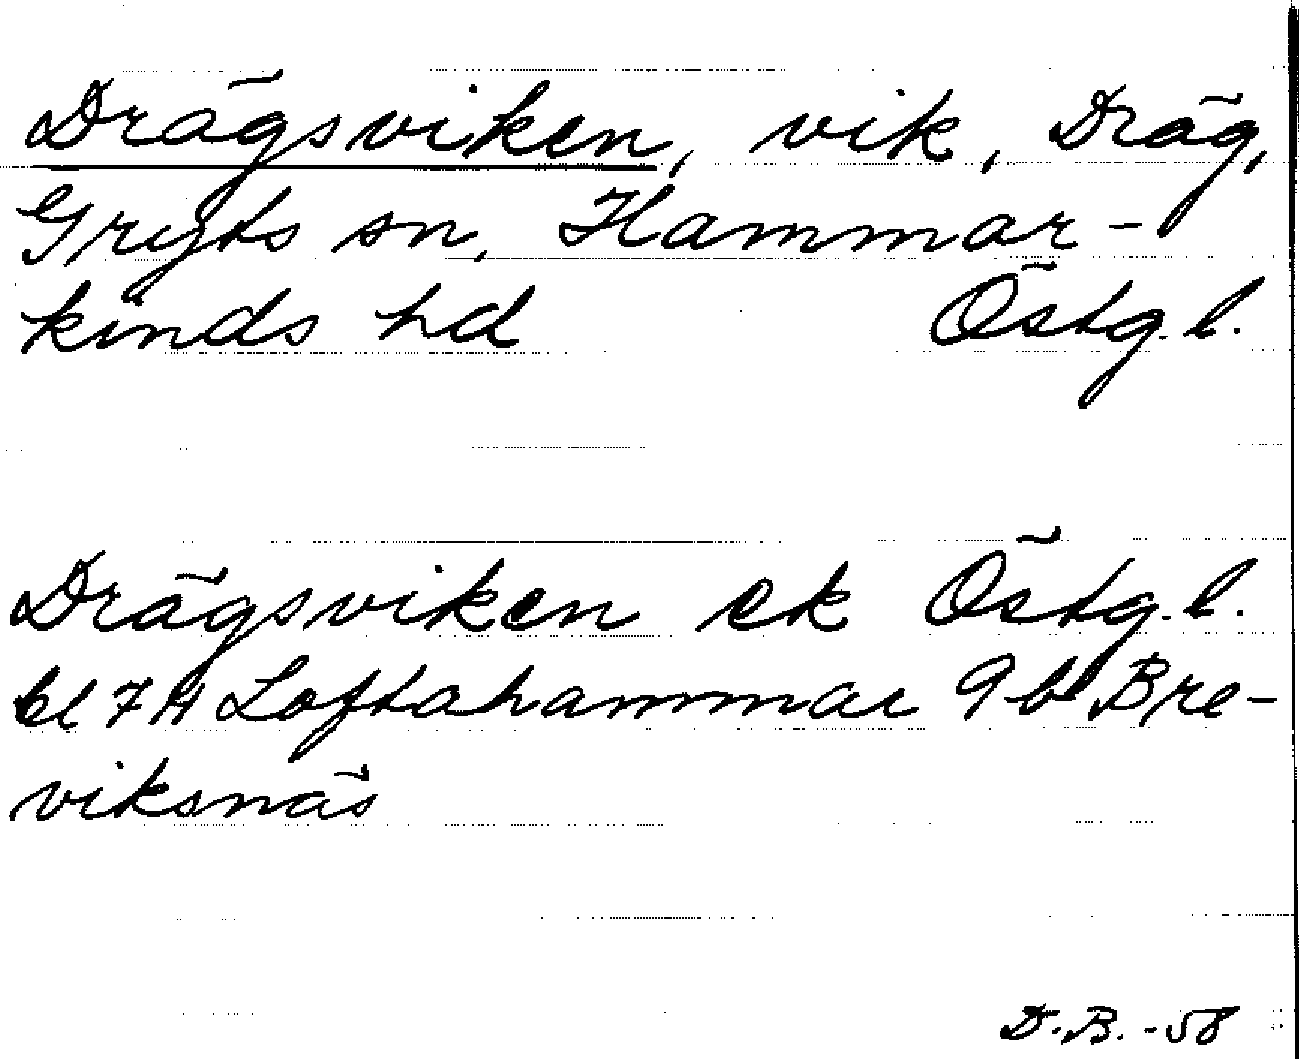 Drägsviken, vik, Dräg,
Gryts sn, Hammar-
kinds hd Östg.l.
Drägsviken ek Östg.l.
bl 7H Loftahammar 9b Bre-
viksnäs
D.B. -58